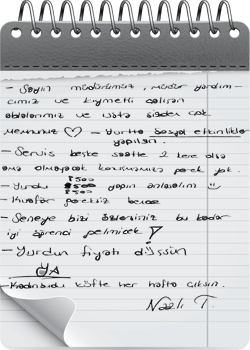 - Sayın müdürümüz, müdür yardım-
cımız ve kıymetli çalışan
ablalarımız ve usta sizden çok
memnunuz ♡ - Yurtta sosyal etkinlikler
yapılsın.
- Servis keşke saatte 2 kere olsa
ama olmayacak konuşmamıza gerek yok.
- Yurdu 8500 yapın anlaşalım ☺
8500
- Kuaför gereksiz bence
- Seneye bizi özlersiniz bu kadar
iyi öğrenci gelmicek!
- Yurdun fiyatı düşsün
YA
- Kadınbudu köfte her hafta çıksın.
Nazlı T.